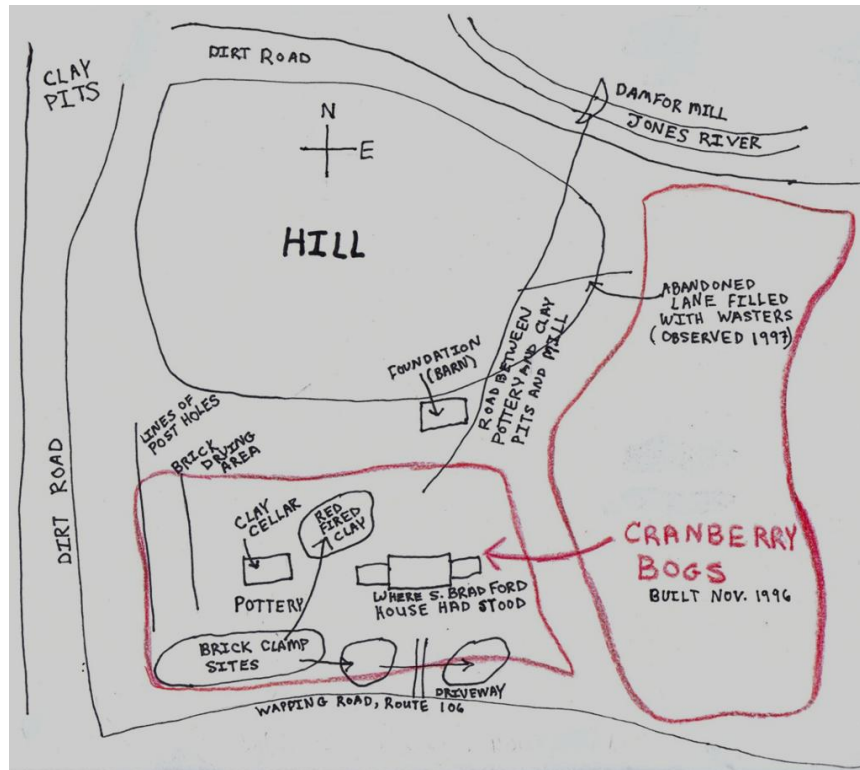 DIRT ROAD
CLAY
PITS
N
E
DAM FOR MILL
JONES RIVER
HILL
ABANDONED
LANE FILLED
WITH WASTERS
(OBSERVED 1997)
ROAD BETWEEN
POTTERY AND CLAY
PITS AND MILL
FOUNDATION
(BARN)
LINES OF
POST HOLES
BRICK
DRYING
AREA
DIRT ROAD
CLAY
CELLAR
RED
FIRED
CLAY
POTTERY
WHERE S. BRADFORD
HOUSE HAD STOOD
CRANBERRY
BOGS
BUILT NOV. 1996
BRICK CLAMP
SITES
DRIVEWAY
WAPPING ROAD, ROUTE 106